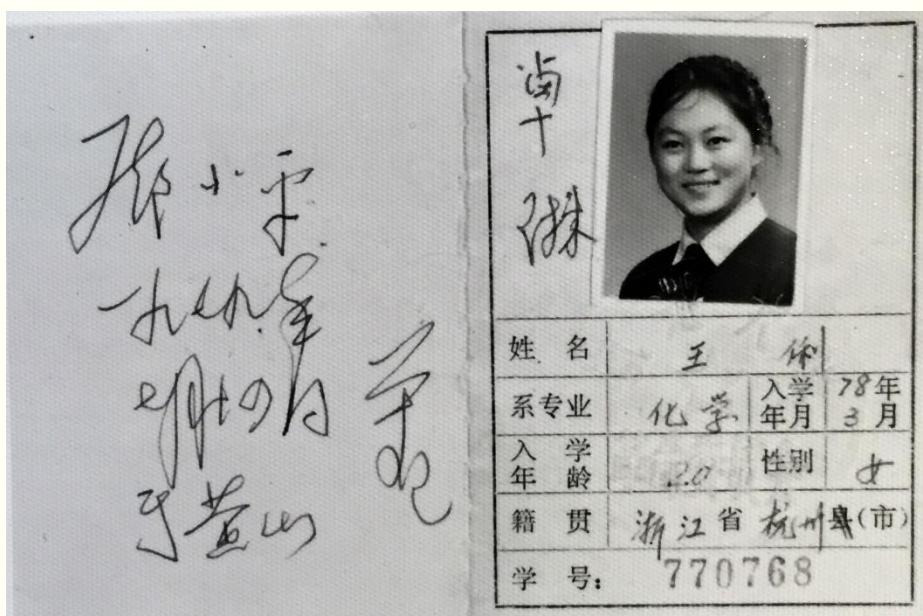 邓小平
一九七九年
七月十四日
于黄山
卓琳
姓 名 王 俐
系专业 化学 入学年月 78年3月
入学年龄 20 性别 女
籍 贯 浙江省杭州县(市)
学 号: 770768